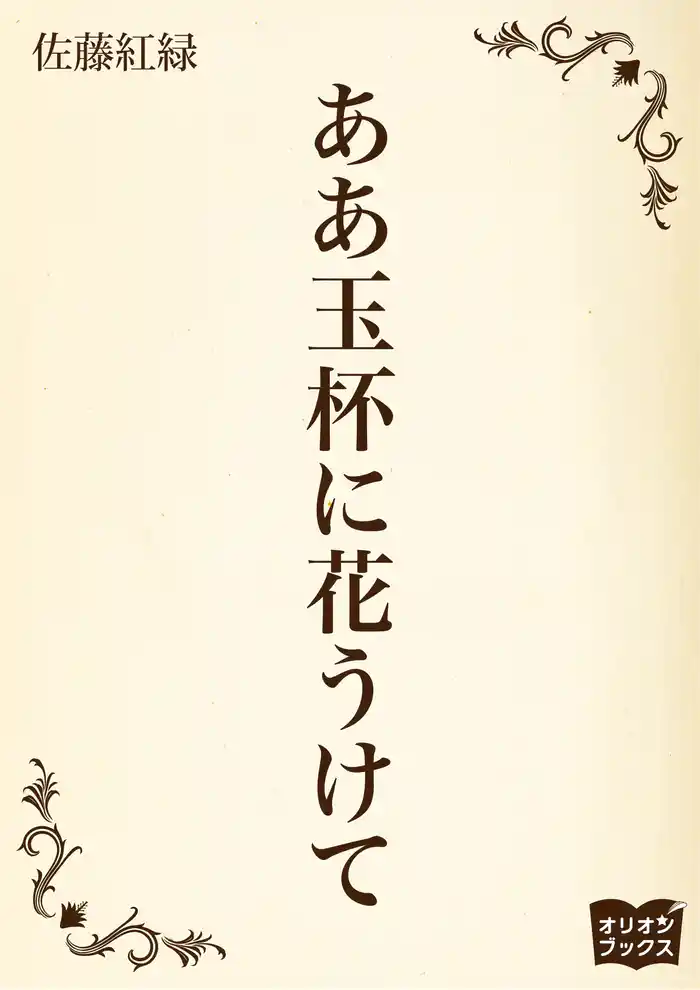 佐藤紅緑
ああ玉杯に花うけて
オリオン
ブックス